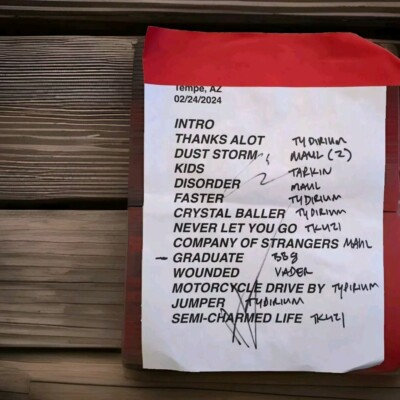 Tempe, AZ
02/24/2024
INTRO
THANKS ALOT TYDIRIUM
DUST STORM MAUL (2)
KIDS TARKIN
DISORDER MAUL
FASTER TYDIRIUM
CRYSTAL BALLER TYDIRIUM
NEVER LET YOU GO TK421
COMPANY OF STRANGERS MAUL
- GRADUATE BB8
WOUNDED VADER
MOTORCYCLE DRIVE BY TYDIRIUM
JUMPER TYDIRIUM
SEMI-CHARMED LIFE TK421